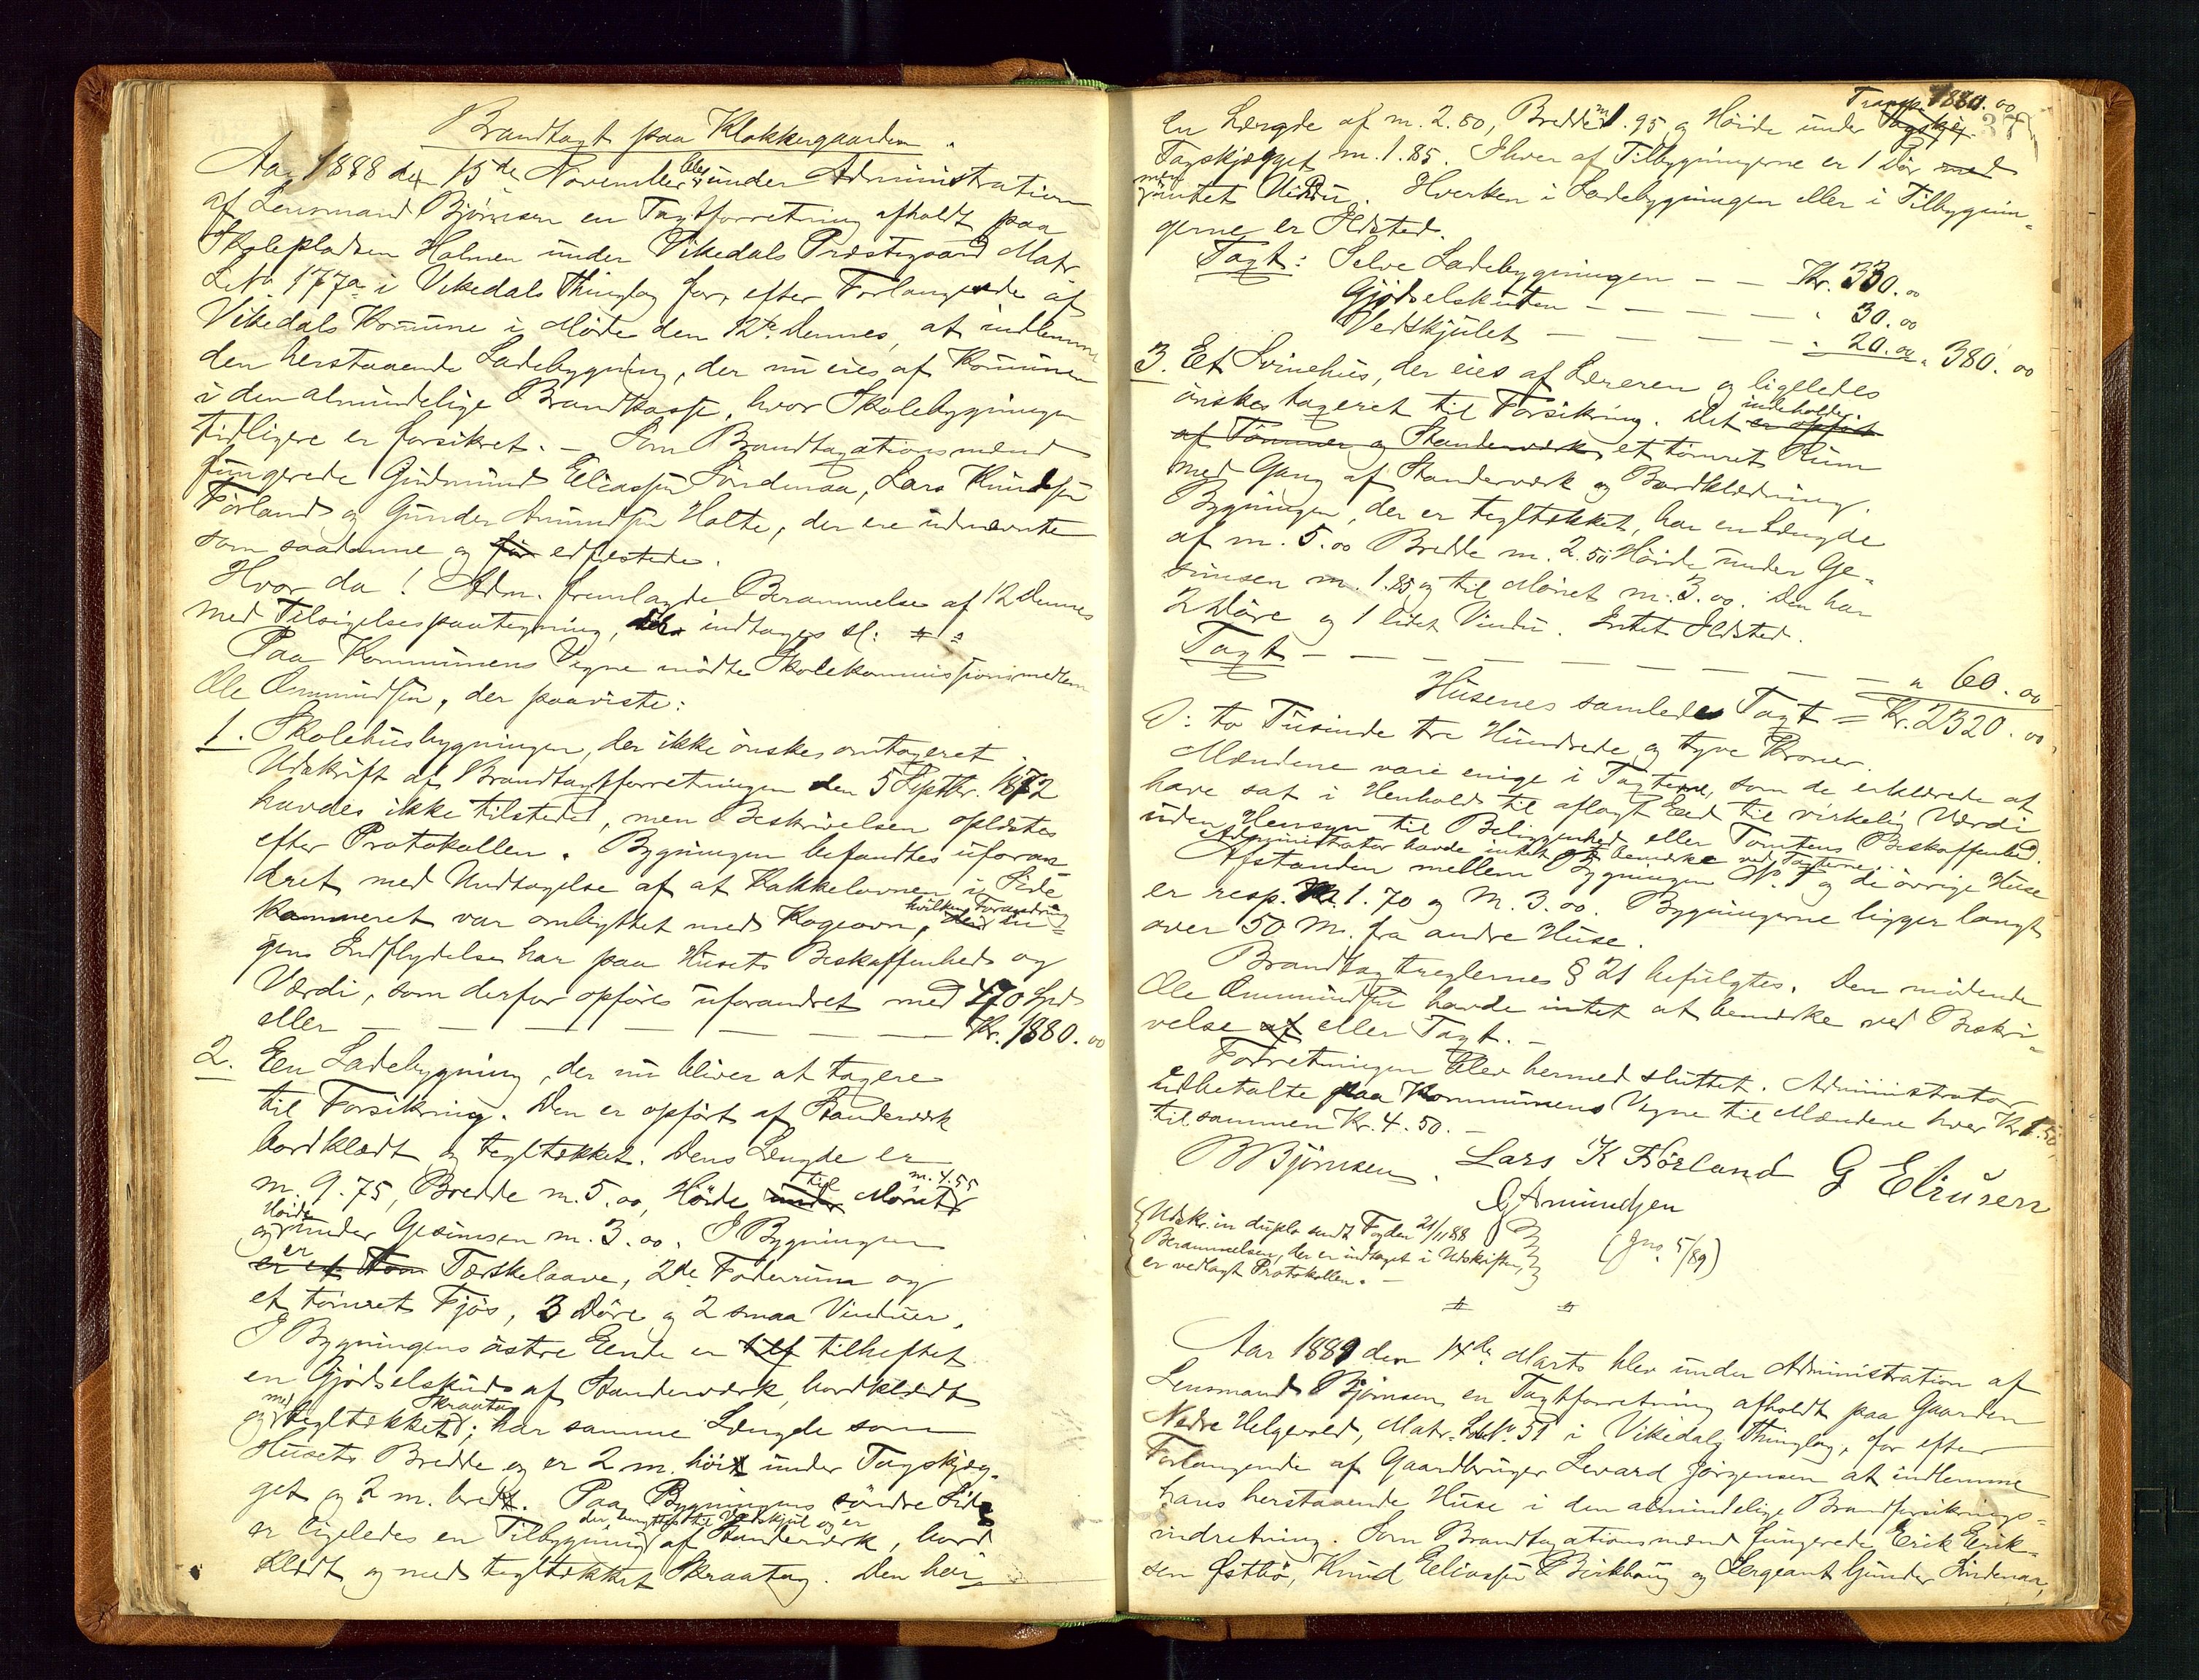 Brandtaxt paa Klokkergaarden.
Aar 1888 den 15de November blev under Administration
af Lensmand Bjørnsen en Taxtforretning afholdt paa
Skolepladsen Holmen under Vikedals Præstegaard Matr
L.No 177a i Vikedals Thinglag for, efter Forlangende af
Vikedals Komune i Møde den 12te dennes, at indlemme
den herstaaende Ladebygning, der nu eies af Komunen
i den almindelige Brandkasse, hvor Skolebygningen
tidligere er forsikret. – Som Brandtaxationsmænd
fungerede Gudmund Eliassen Søndenaa, Lars Knudsen
Førland og Gunder Amundsen Holte, der ere udnævnte
som saadanne og før edfæstede.
Hvor da! Adm. fremlagde Berammelse af 12 dennes
med Tilsigelsespaategning, der indtages sl:
Paa Kommunens Vegne mødte Skolekommissionsmedlem
Ole Ommundsen, der paaviste:
1. Skolehusbygningen, der ikke ønskes omtaxeret.
Udskrift af Brandtaxtforretningen den 5 Septbr. 1872
havdes ikke tilstede, men Beskrivelsen oplæstes
efter Protokollen. Bygningen befandtes uforan-
dret med Undtagelse af at Kakkelovnen i Side
kammeret var ombyttet med Kogeovn, hvilken Forandring in-
gen Indflydelse har paa Husets Beskaffenhed og
Værdi, som derfor opføres uforandret med 470 Spd
eller – – – – – – – Kr. 1880.00
2. Een Ladebygning, der nu bliver at taxere
til Forsikring. Den er opført af Standerværk
bordklædt og tegltækket. Dens Længde er
m. 9.75, Bredde m. 5.00, Høide under til Mønet m. 4.55
og Høide under Gesimsen m. 3.00. I Bygningen
er Tærskelaave, 2de Foderrum og
et tømret Fjøs, 3 Døre og 2 smaa Vinduer.
I Bygningens østre Eende er tilheftet
en Gjødselskud af Standerværk, bordklædt
og med tegltækket Skraatag; har samme Længde som
Husets Bredde og er 2 m. høit under Tagskjæg-
get og 2 m. bredt. Paa Bygningens søndre Side
er ligeledes en Tilbygning der benyttes til Vedskjul og er af Standerværk, bord
klædt og med tegltækket Skraatag. Den har
Transp. 1880.00
37
en Længde af m. 2.80, Bredde m 1.95 og Høide under
Tagskjægget m. 1.85. I hver af Tilbygningerne er 1 Dør med
men intet Vindu. Hverken i Ladebygningen eller i Tilbygnin-
gerne er Ildsted.
Taxt: Selve Ladebygningen – – Kr. 330.00
Gjødselskuden – – – – – " 30.00
Vedskjulet – – – – – " 20.00 " 380.00
3. Et Svinehus, der eies af Læreren og ligeledes
ønskes taxeret til Forsikring. Det er opført indeholder
af Tømmer og Standerværk, et tømret Rum
med Gang af Standerværk og Bordklædning.
Bygningen, der er tegltækket, har en Længde
af m. 5.00 Bredde m. 2.50 Høide under Ge-
simsen m. 1.85 og til Mønet m. 3.00. Den har
2 Døre og 1 lidet Vindu. Intet Ildsted.
Taxt – – – – – – – – – " 60.00
Husenes samlede Taxt = Kr. 2320.00
D: to Tusinde tre Hundrede og tyve Kroner.
Mændene vare enige i Taxterne, som de erklærede at
have sat i Henhold til aflagt Eed til virkelig Værdi
uden Hensyn til Beliggenhed eller Tomtens Beskaffenhed.
Administrator havde intet at bemærke ved Taxterne.
Afstanden mellem Bygningen No. 1 og de øvrige Huse
er resp. M. 1.70 og M. 3.00. Bygningerne ligger langt
over 50 M. fra andre Huse.
Brandtaxtreglernes § 21 befulgtes. Den mødende
Ole Ommundsen havde intet at bemærke ved Beskri-
velse af eller Taxt. –
Forretningen blev hermed sluttet. Administrator
udbetalte paa Kommunens Vegne til Mændene hver Kr 1.50
tilsammen Kr. 4.50. –
BBjørnsen. Lars K Førland G Eliusen
G Amundsen
Udskr. in duplo sendt Fogden 21/11 88
Berammelsen, der er indtaget i Udskriften,
er vedlagt Protokollen. –
(Jns. 5/89)
Aar 1889 den 14de Marts blev under Administration af
Lensmand Bjørnsen en Taxtforretning afholdt paa Gaarden
Nedre Helgevold, Matr. LøbeNo 51 i Vikedals Thinglag, for efter
Forlangende af Gaardbruger Sevard Jørgensen at indlemme
hans herstaaende Huse i den almindelige Brandforsikrings-
indretning. Som Brandtaxationsmænd fungerede Erik Erik-
sen Østbø, Knud Eliassen Birkhaug og Sergeant Gunder Sindenaa,